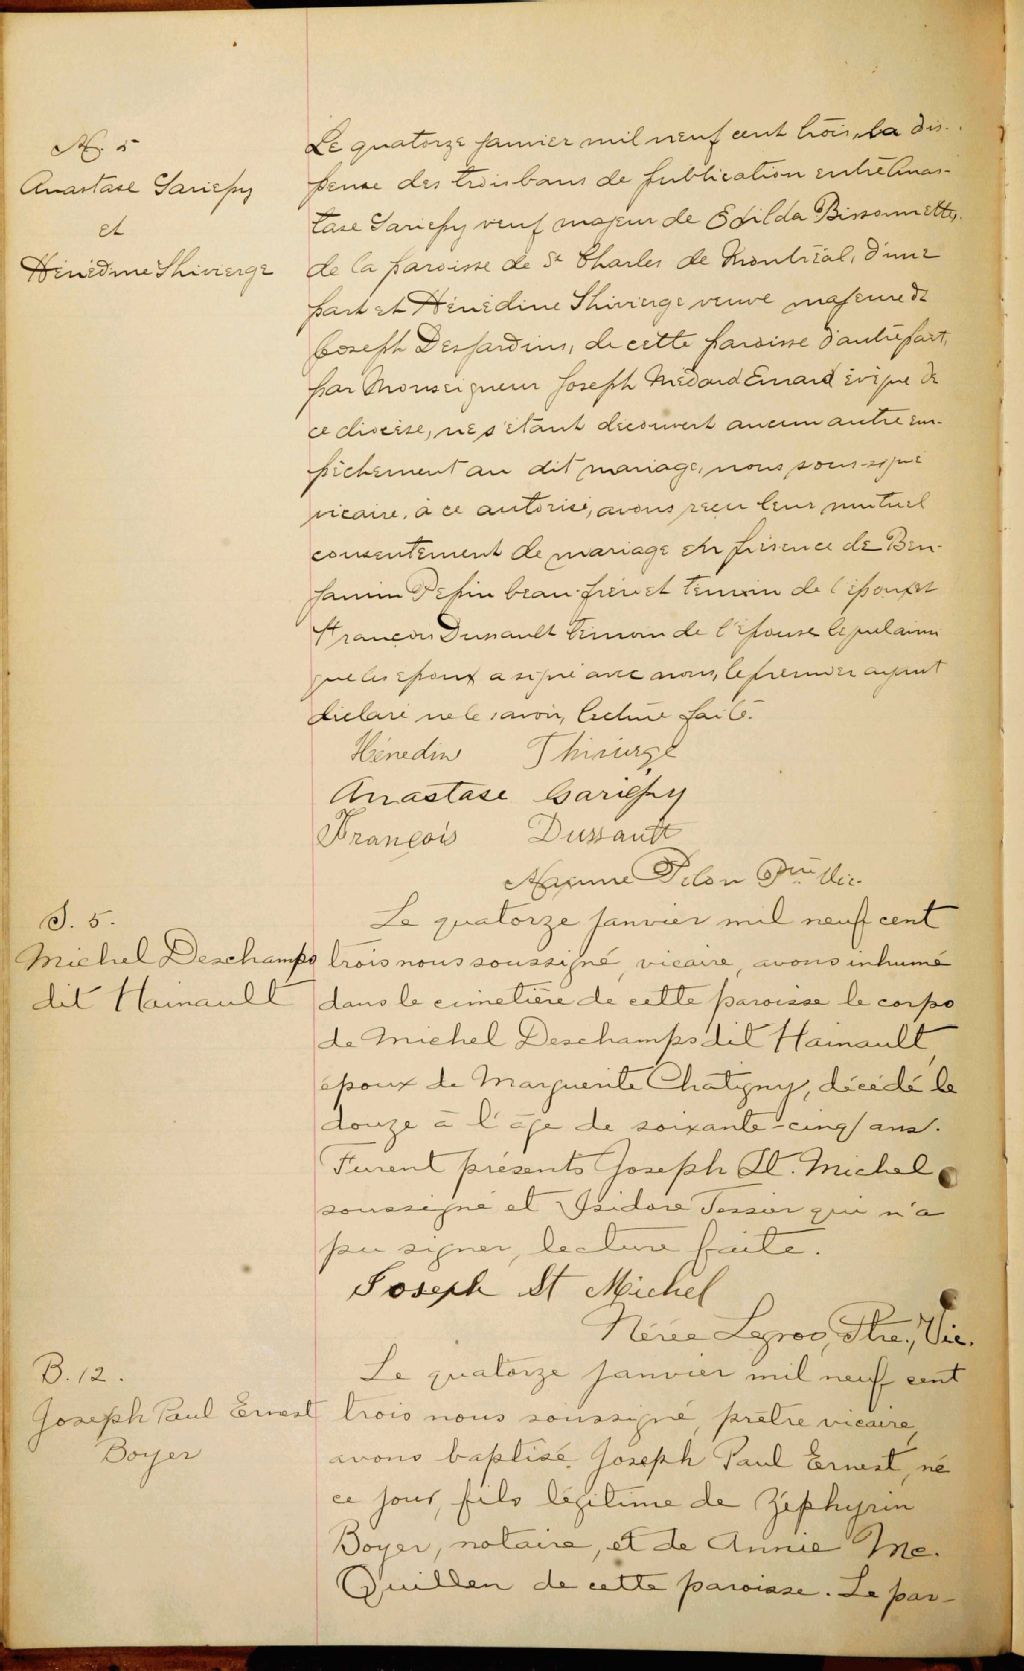 M. 5
Anastase Gariepy
et
Hénédine Thivierge
Le quatorze janvier mil neuf cent trois, la dis-
pense des trois bans de publication entre Anas-
tase Gariepy veuf majeur de Exilda Bissonnette,
de la paroisse de St Charles de Montréal, d'une
part et Hénédine Thivierge veuve majeure de
Joseph Desjardins, de cette paroisse d'autre part,
par Monseigneur Joseph Médard Emard évêque de
ce diocèse, ne s'étant découvert aucun autre em-
pêchement au dit mariage, nous sous-signé
vicaire, à ce autorisé, avons reçu leur mutuel
consentement de mariage en présence de Ben-
jamin Pepin beau-frère et témoin de l'époux et
François Dussault témoin de l'épouse lequel ainsi
que les époux a signé avec nous, le premier ayant
déclaré ne le savoir, lecture faite.
Hénedin Thivierge
Anastase Gariépy
François Dussault
Maxime Pilon Ptre Vic.
S. 5.
Michel Deschamps
dit Hainault
Le quatorze janvier mil neuf cent
trois nous soussigné, vicaire, avons inhumé
dans le cimetière de cette paroisse le corps
de Michel Deschamps dit Hainault,
époux de Marguerite Chatigny, décédé le
douze à l'âge de soixante-cinq ans.
Furent présents Joseph St. Michel
soussigné et Isidore Tessier qui n'a
pu signer, lecture faite.
Joseph St Michel
Nérée Legros, Ptre., Vic.
B. 12.
Joseph Paul Ernest
Boyer
Le quatorze janvier mil neuf cent
trois nous soussigné, prêtre vicaire,
avons baptisé Joseph Paul Ernest, né
ce jour, fils légitime de Zéphyrin
Boyer, notaire, et de Annie Mc.
Quillen de cette paroisse. Le par-